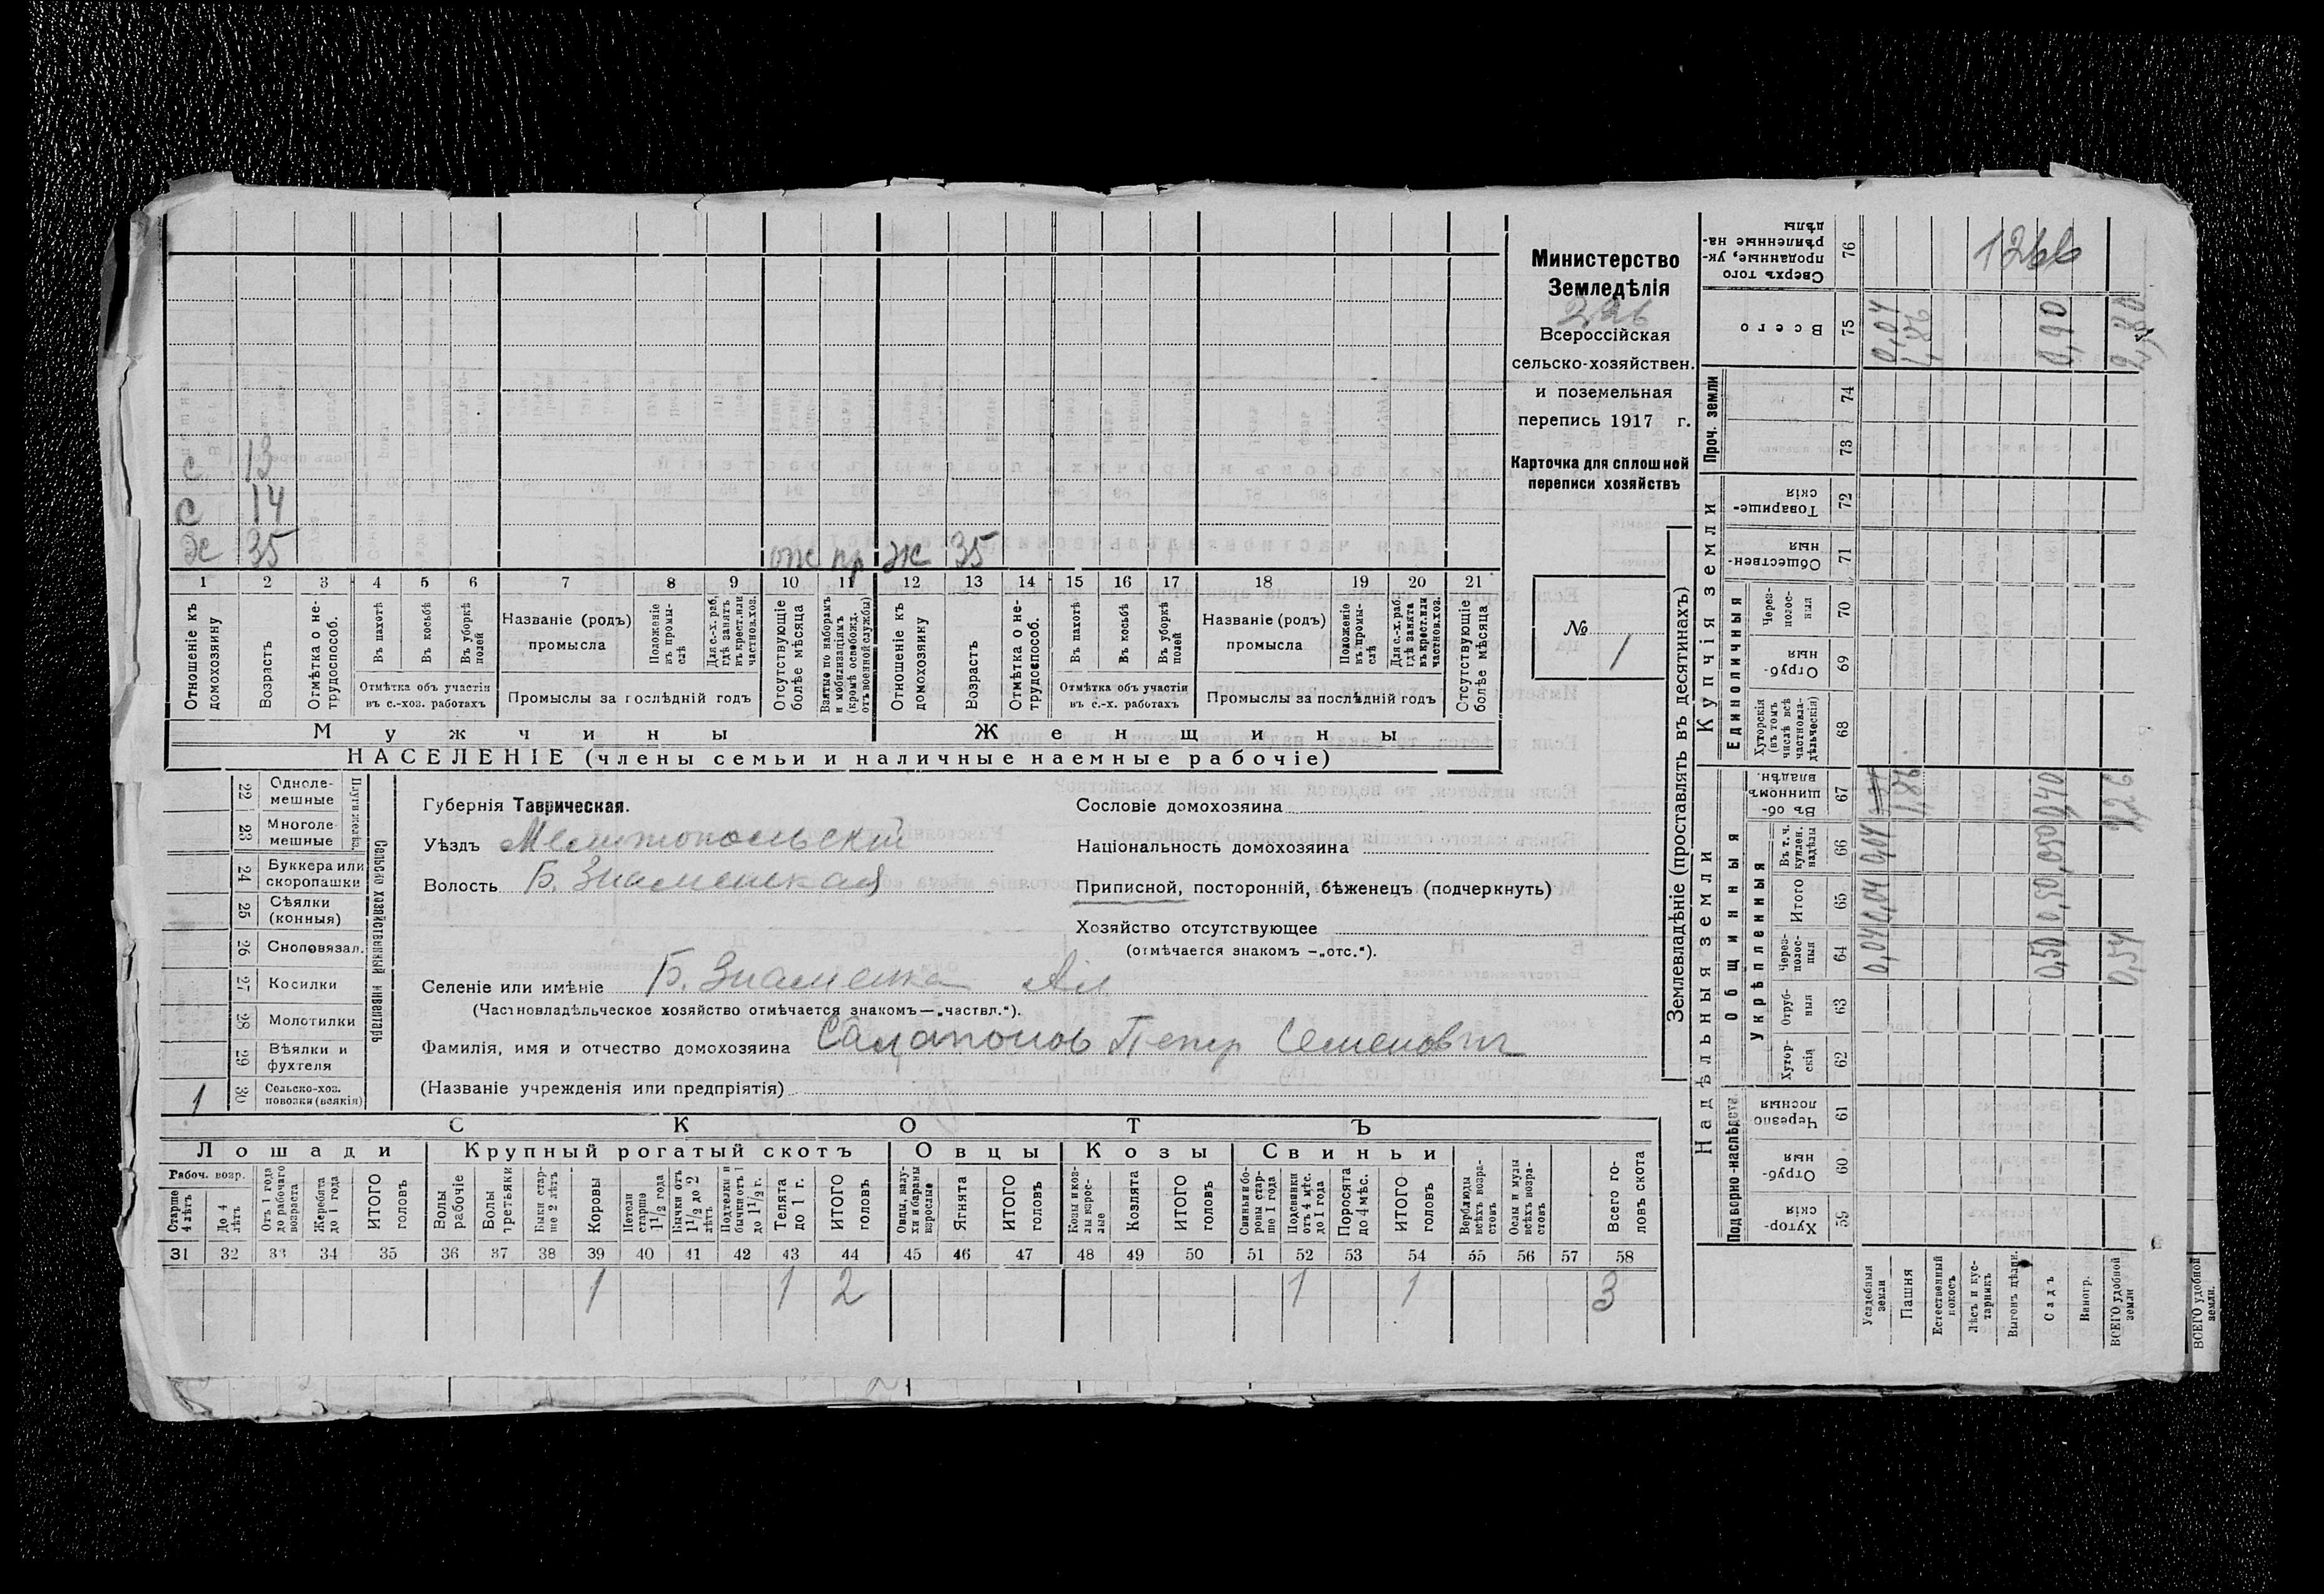 Министерство
Земледѣлія
226
Всероссійская
сельско-хозяйствен.
и поземельная
перепись 1917 г.
Карточка для сплошной
переписи хозяйствъ
№
1
с 13
с 14
Ж 35 отс пр Ж 35
1 2 3 4 5 6 7 8 9 10 11 12 13 14 15 16 17 18 19 20 21
Отношеніе къ домохозяину
Возрастъ
Отмѣтка о не-трудоспособ.
Въ пахотѣ
Въ косьбѣ
Въ уборкѣ полей
Отмѣтка объ участіи въ с.-хоз. работахъ
Названіе (родъ) промысла
Положеніе въ промы-слѣ
Для с.-х. раб. гдѣ занятъ въ крест. или частнов. хоз.
Промыслы за послѣдній годъ
Отсутствующіе болѣе мѣсяца
Взятые по наборамъ и мобилизаціямъ (кромѣ освобожд. отъ военной службы)
Отношеніе къ домохозяину
Возрастъ
Отмѣтка о не-трудоспособ.
Въ пахотѣ
Въ косьбѣ
Въ уборкѣ полей
Отмѣтка объ участіи въ с.-х. работахъ
Названіе (родъ) промысла
Положеніе въ промы-слѣ
Для с.-х. раб. гдѣ занята въ крест. или частнов. хоз.
Промыслы за послѣдній годъ
Отсутствующіе болѣе мѣсяца
Мужчины Женщины
НАСЕЛЕНІЕ (члены семьи и наличные наемные рабочіе)
Сельско хозяйственный инвентарь
Плуги желѣз.
22 Одноле-мешные
23 Многоле-мешные
24 Буккера или скоропашки
25 Сѣялки (конныя)
26 Сноповязал.
27 Косилки
28 Молотилки
29 Вѣялки и фухтеля
1 30 Сельско-хоз. повозки (всякія)
Губернія Таврическая.
Уѣздъ Мелитопольскій
Волость Б. Знаменская
Сословіе домохозяина
Національность домохозяина
Приписной, посторонній, бѣженецъ (подчеркнуть)
Хозяйство отсутствующее
(отмѣчается знакомъ —„отс.“).
Селеніе или имѣніе Б. Знаменка
(Частновладѣльческое хозяйство отмѣчается знакомъ—„частвл.“).
Фамилія, имя и отчество домохозяина Сапапонов Петр Семенович
(Названіе учрежденія или предпріятія)
СКОТЪ
Лошади Крупный рогатый скотъ Овцы Козы Свиньи
Рабоч. возр.
Старше 4 лѣтъ
До 4 лѣтъ
Отъ 1 года до рабочаго возраста
Жеребята до 1 года
ИТОГО головъ
Волы рабочіе
Волы третьяки
Быки стар-ше 2 лѣтъ
Коровы
Нетели старше 1 1/2 года
Бычки отъ 1 1/2 до 2 лѣтъ
Подтелки и бычки отъ 1 до 1 1/2 г.
Телята до 1 г.
ИТОГО головъ
Овцы, валу-хи и бараны взрослые
Ягнята
ИТОГО головъ
Козы и коз-лы взрос-лые
Козлята
ИТОГО головъ
Свиньи и бо-ровы стар-ше 1 года
Подсвинки отъ 4 мѣс. до 1 года
Поросята до 4 мѣс.
ИТОГО головъ
Верблюды всѣхъ возра-стовъ
Ослы и мулы всѣхъ возра-стовъ
Всего го-ловъ скота
31 32 33 34 35 36 37 38 39 40 41 42 43 44 45 46 47 48 49 50 51 52 53 54 55 56 57 58
1 1 2 1 1 3
Землевладѣніе (проставлять въ десятинахъ)
Надѣльныя земли
Купчія земли
Проч. земли
Подворно-наслѣдств.
Общинныя
Укрѣпленныя
Единоличныя
Сверхъ того проданные, ук-рѣпленные на-дѣлы 76 1266
Всего 75 0,04 1,86 0,90 2,80
74
73
Товарище-скія 72
Обществен-ныя 71
Через-полос-ныя 70
Отруб-ныя 69
Хуторскія (въ томъ числѣ всѣ частновла-дѣльческія) 68
Въ об-щинномъ владѣн. 67 1,86 0,40 2,26
Въ т. ч. куплен. надѣлы 66 0,04 0,50
Итого 65 0,04 0,50
Через-полос-ныя 64 0,04 0,50 0,54
Отруб-ныя 63
Хутор-скія 62
Черезпо лосныя 61
Отруб-ныя 60
Хутор-скія 59
Усадебныя земли
Пашня
Естественный покосъ
Лѣсъ и кус-тарникъ
Выгонъ цѣлин.
Садъ
Виногр.
ВСЕГО удобной земли
ВСЕГО удобной земли.